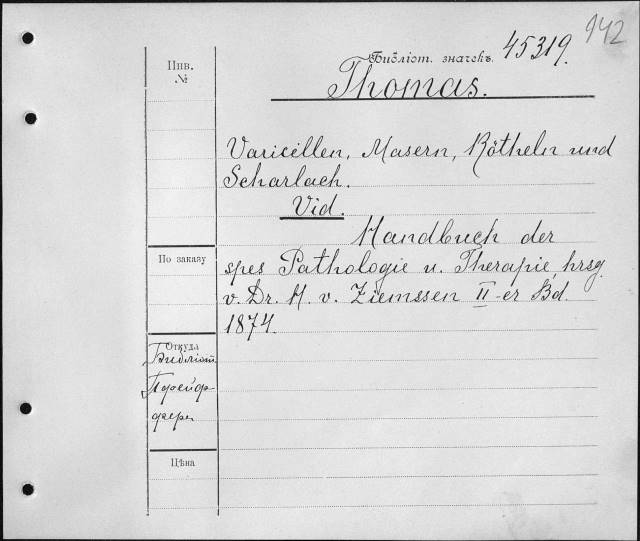 142
Библіот. значекъ. 45319.
Инв.
№
Thomas.
Varicellen, Masern, Rötheln und
Scharlach.
Vid.
Handbuch der
По заказу
spes Pathologie u. Therapie, hrsg
v. Dr. H. v. Ziemssen II-er Bd
1874.
Откуда
Библіот.
Пфейф-
фера
Цѣна